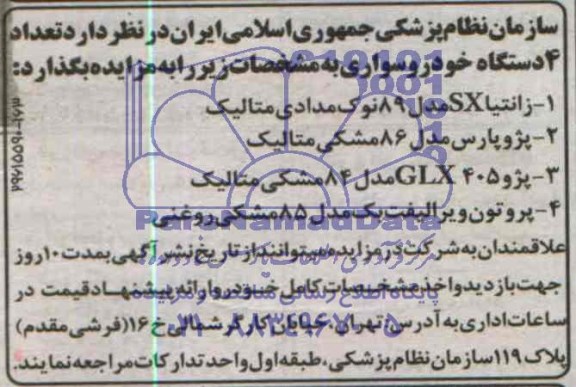 سازمان نظام پزشکی جمهوری اسلامی ایران در نظر دارد تعداد
۴ دستگاه خودرو سواری به مشخصات زیر را به مزایده بگذارد:
۱-زانتیا SX مدل ۸۹ نوک مدادی متالیک
۲-پژو پارس مدل ۸۶ مشکی متالیک
۳-پژو ۴۰۵ GLX مدل ۸۴ مشکی متالیک
۴-پروتون ویرا لیفت بک مدل ۸۵ مشکی روغنی
علاقمندان به شرکت در مزایده میتوانند از تاریخ نشر آگهی بمدت ۱۰ روز
جهت بازدید و اخذ مشخصات کامل خودرو و ارائه پیشنهاد قیمت در
ساعات اداری به آدرس: تهران، خیابان کارگر شمالی خ ۱۶ (فرشی مقدم)
پلاک ۱۱۹ سازمان نظام پزشکی، طبقه اول واحد تدارکات مراجعه نمایند.
ParsNamadData
پایگاه اطلاع رسانی مناقصه و مزایده
۰۲۱-۸۸۳۴۹۶۷۰-۵